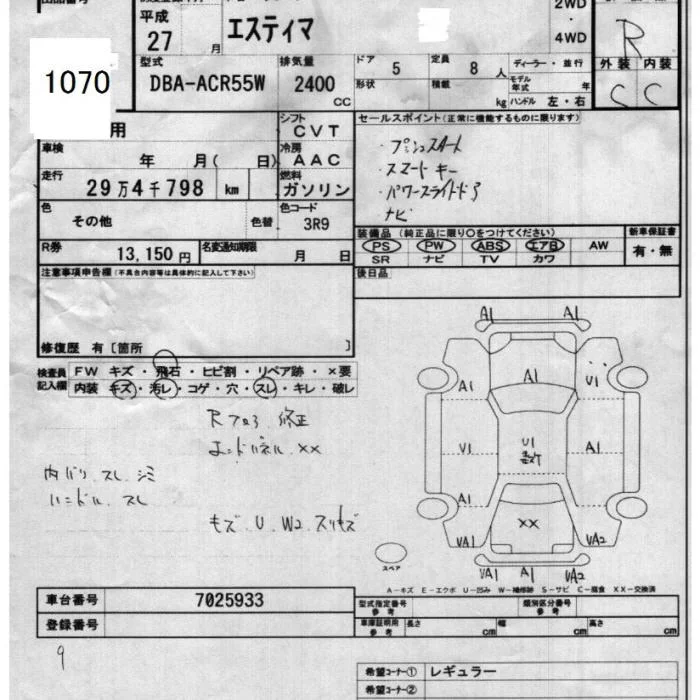 平成 27 月
エスティマ
2WD
・
4WD
R
1070
型式 DBA-ACR55W
排気量 2400 CC
ドア 5
定員 8 人
ディーラー・並行
モデル年式 年
外装 内装
C C
形状
積載 kg
ハンドル 左・右
用
シフト CVT
セールスポイント(正常に機能するものに限ります)
車検 年 月( 日)
冷房 AAC
・プッシュスタート
・スマートキー
・パワースライドドア
・ナビ
走行 29万4千798 km
燃料 ガソリン
色 その他 色替
色コード 3R9
装備品 (純正品に限り○をつけてください)
新車保証書
有・無
PS PW ABS エアB AW
SR ナビ TV カワ
R券 13,150円
名変通知期限 月 日
後日品
注意事項申告欄(不具合内容等は具体的に記入して下さい)
修復歴 有〔箇所 〕
検査員記入欄
FW キズ・飛石・ヒビ割・リペア跡・×要
内装 キズ・汚レ・コゲ・穴・スレ・キレ・破レ
Rフロア 修正
エンドパネル ××
内バリ スレ シミ
ハンドル スレ
キズ U W2 スリキズ
A1 A1
A1 A1 U1
V1 U1 A1
A1
VA1 XX VA2
VA1 A1 VA2
スペア
A-キズ E-エクボ U-凹み W-補修跡 S-サビ C-腐食 XX-交換済
車台番号 7025933
登録番号
型式指定番号 参考
類別区分番号 参考
車庫証明用 参考 長さ cm 幅 cm 高さ cm
9
希望コーナー① レギュラー
希望コーナー②